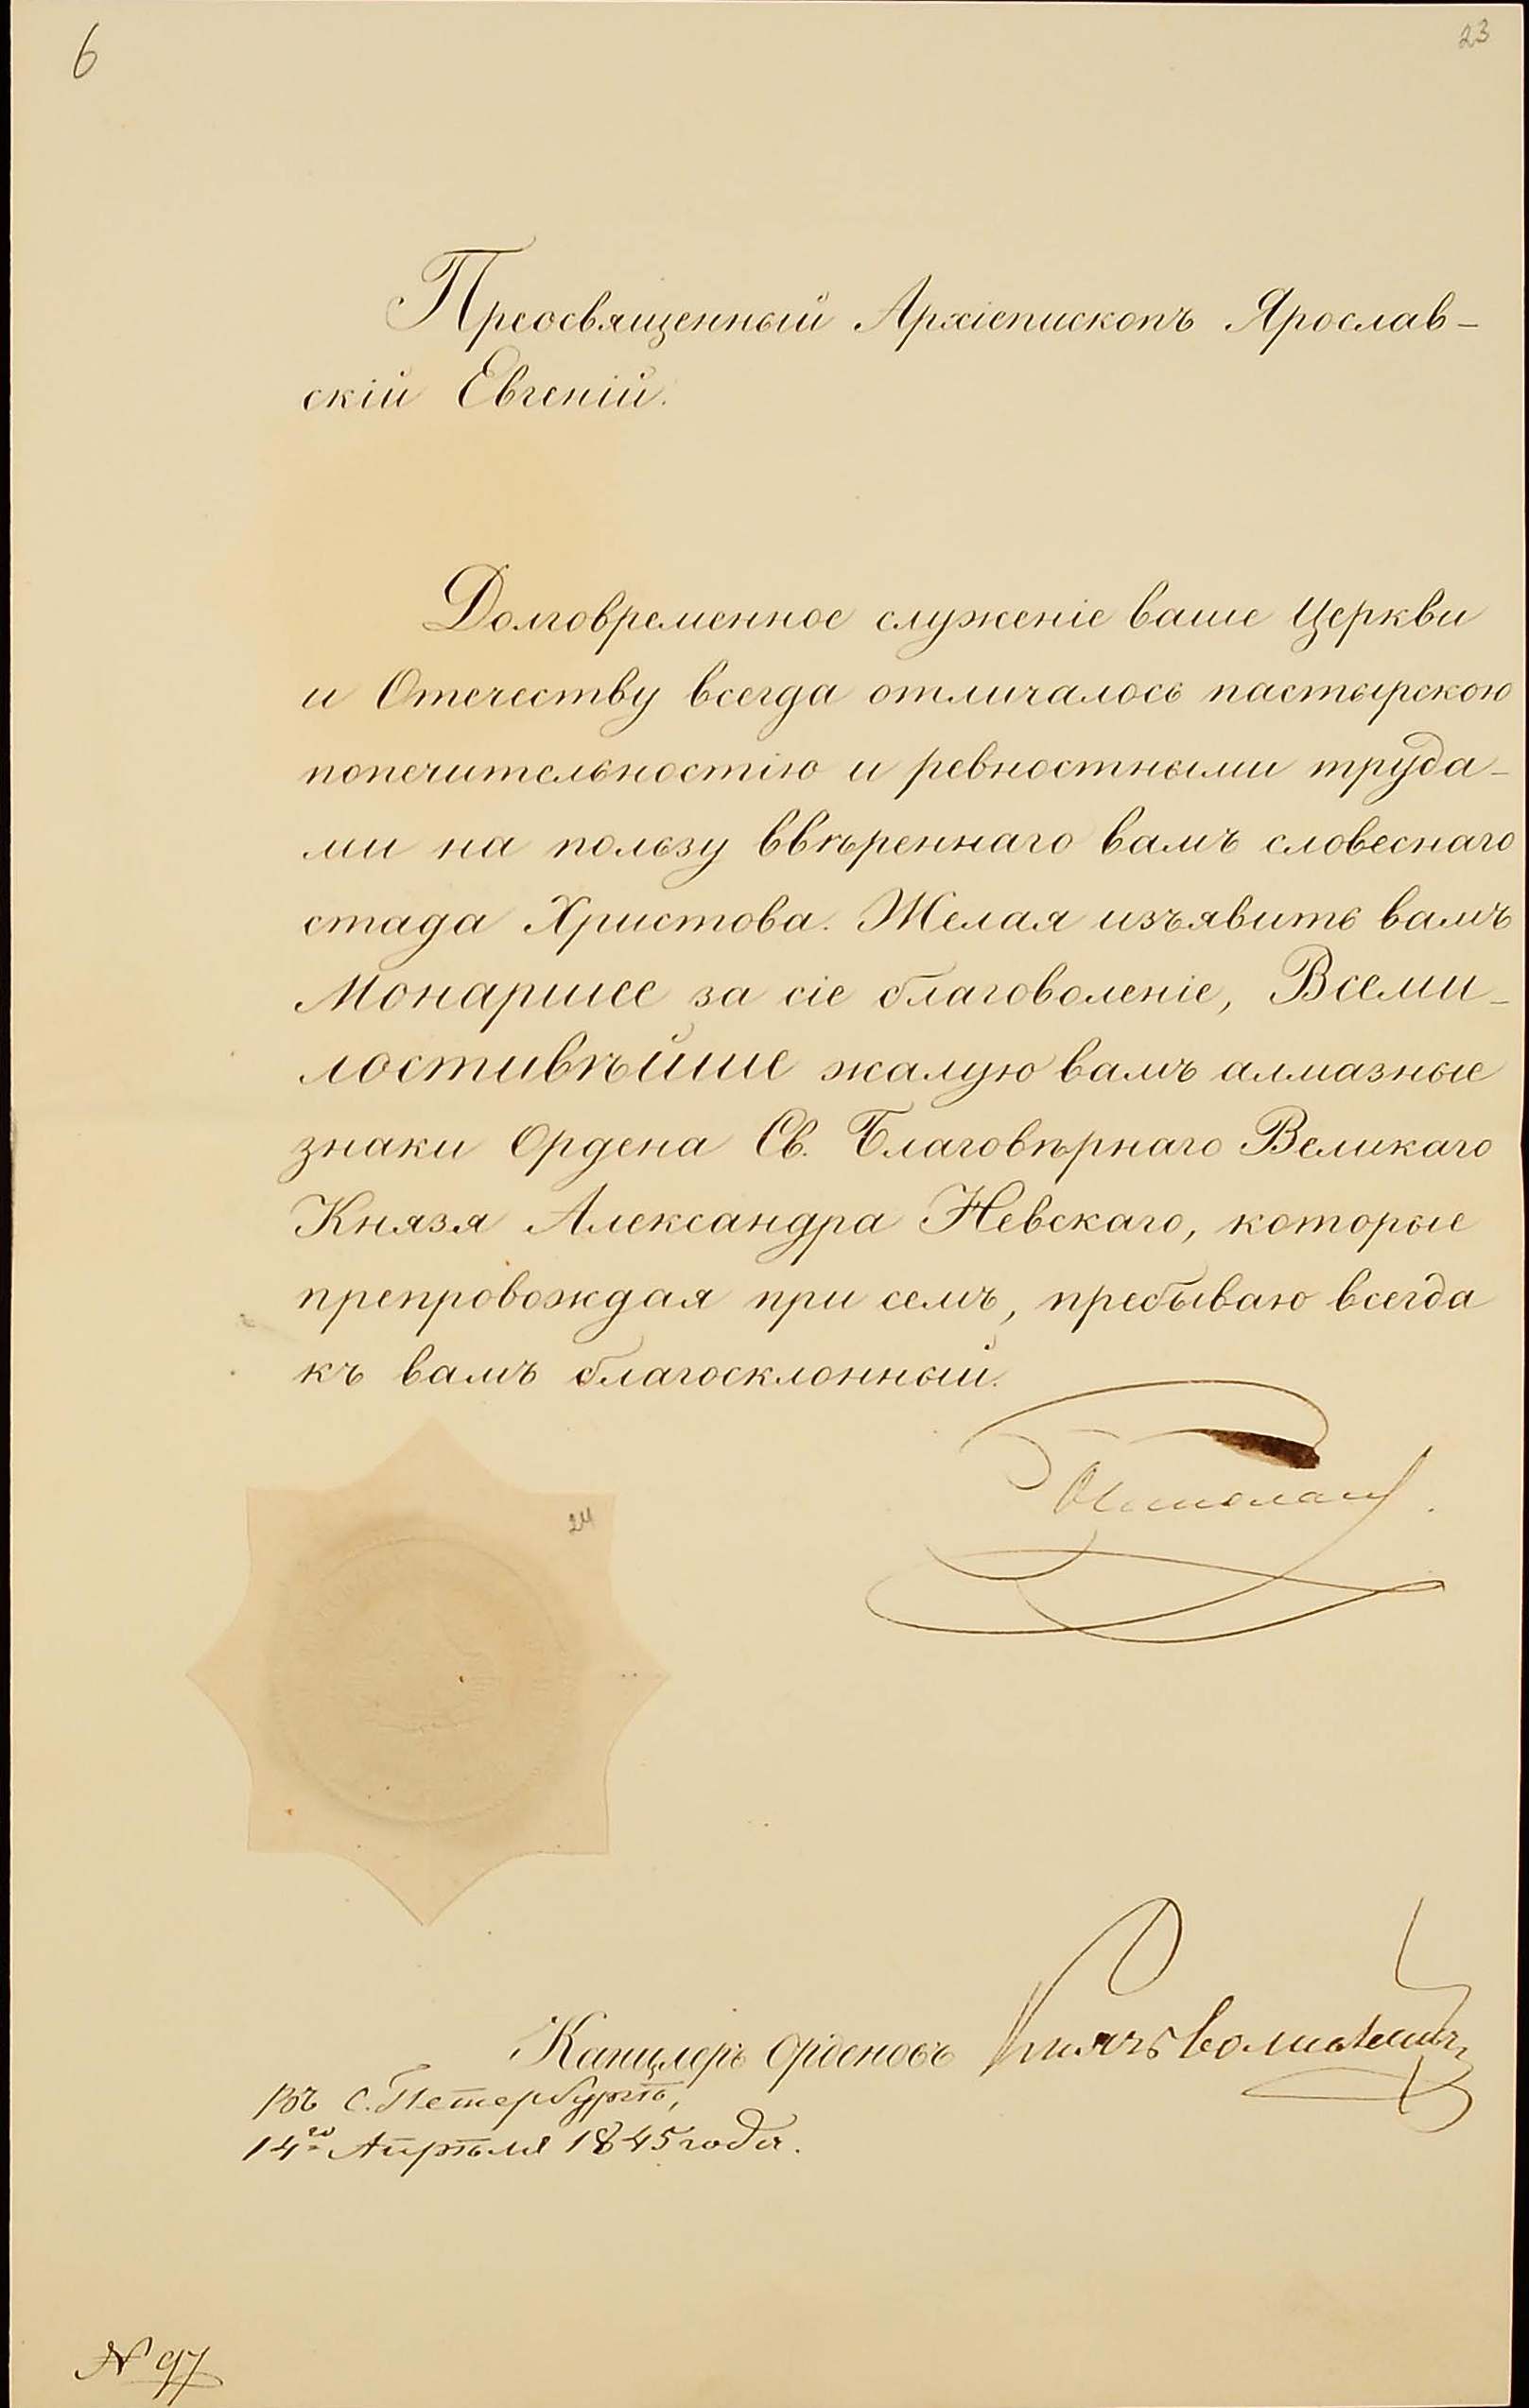 6
23
Преосвященный Архіепископъ Ярослав-
скій Евгеній.
Долговременное служеніе ваше Церкви
и Отечеству всегда отличалось пастырскою
попечительностію и ревностными труда-
ми на пользу ввѣреннаго вамъ словеснаго
стада Христова. Желая изъявить вамъ
Монаршее за сіе благоволеніе, Всеми-
лостивѣйше жалую вамъ алмазные
знаки Ордена Св. Благовѣрнаго Великаго
Князя Александра Невскаго, которые
препровождая при семъ, пребываю всегда
къ вамъ благосклонный.
Николай.
24
Канцлеръ Орденовъ Князь Волконскій
Въ С. Петербургѣ,
14го Апрѣля 1845 года.
№ 97